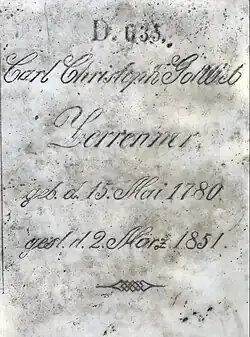 D. 035.
Carl Christoph Gottlieb
Zerrenner
geb. d. 15. Mai 1780.
gest. d. 2. März 1851.